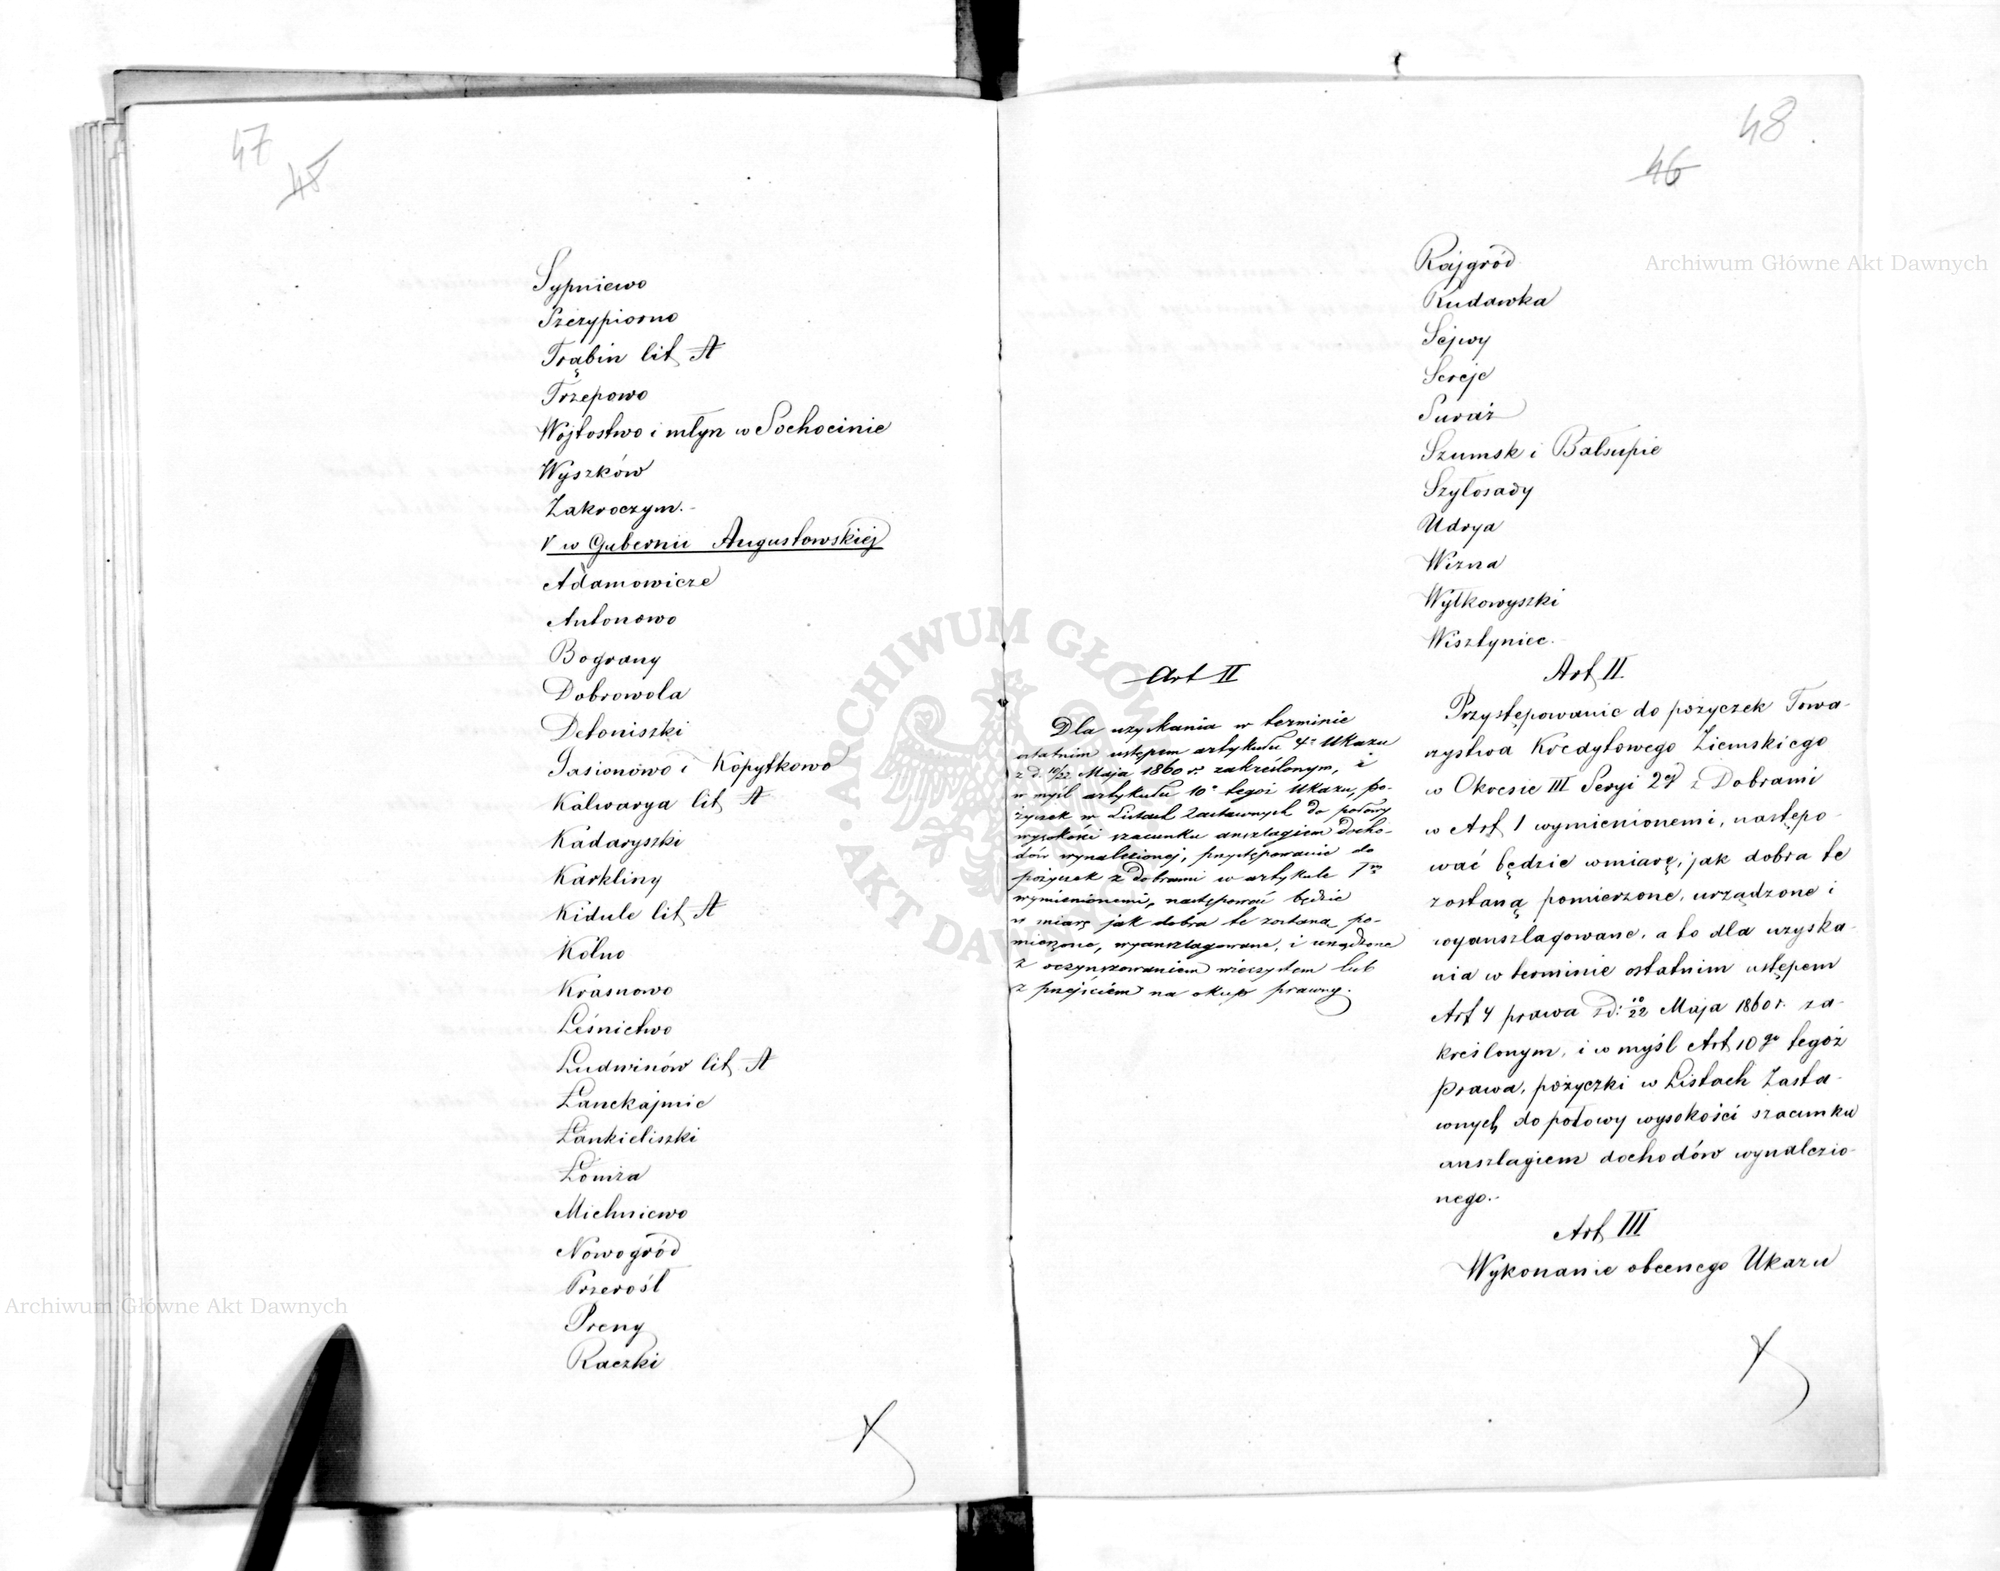 47
45
Sypniewo
Szczypiorno
Trąbin lit A
Trzepowo
Wójtostwo i młyn w Sochocinie
Wyszków
Zakroczym.-
V w Gubernii Augustowskiéj
Adamowicze
Antonowo
Bograny
Dobrowola
Detoniszki
Jasionowo i Kopytkowo
Kalwarya lit A
Kadaryszki
Karkliny
Kidule lit A
Kolno
Krasnowo
Leśnictwo
Ludwinów lit A
Łanckajmie
Łankieliszki
Łomża
Michniewo
Nowogród
Przerośl
Preny
Raczki
48
46
Rajgród
Rudawka
Sejwy
Sereje
Suraż
Szumsk i Balsupie
Szyłosady
Udrya
Wizna
Wyłkowyszki
Wisztyniec.
Art II
Dla uzyskania w terminie
ostatnim ustępem artykułu 4º Ukazu
z d. 10/22 Maja 1860 r. zakreślonym, i
w myśl artykułu 10º tegoż Ukazu, po-
życzek w Listach Zastawnych do połowy
wysokości szacunku anszlagiem docho-
dów wynalezionej, przystępowanie do
pożyczek z dobrami w artykule 1m
wymienionemi, następować będzie
w miarę jak dobra te zostaną po-
mierzone, wyanszlagowane, i urządzone
z oczynszowaniem wieczystem lub
z przejściem na okup prawny.
Art II
Przystępowanie do pożyczek Towa-
rzystwa Kredytowego Ziemskiego
w Okresie III Seryi 2ej z Dobrami
w Art 1 wymienionemi, następo-
wać będzie w miarę, jak dobra te
zostaną pomierzone, urządzone i
wyanszlagowane, a to dla uzyska-
nia w terminie ostatnim ustępem
Art 4 prawa z d: 10/22 Maja 1860 r. za-
kreślonym, i w myśl Art 10go tegóż
prawa, pożyczki w Listach Zasta-
wnych do połowy wysokości szacunku
anszlagiem dochodów wynalezio-
nego.-
Art III
Wykonanie obecnego Ukazu
Archiwum Główne Akt Dawnych
ARCHIWUM GŁÓWNE AKT DAWNYCH
Archiwum Główne Akt Dawnych